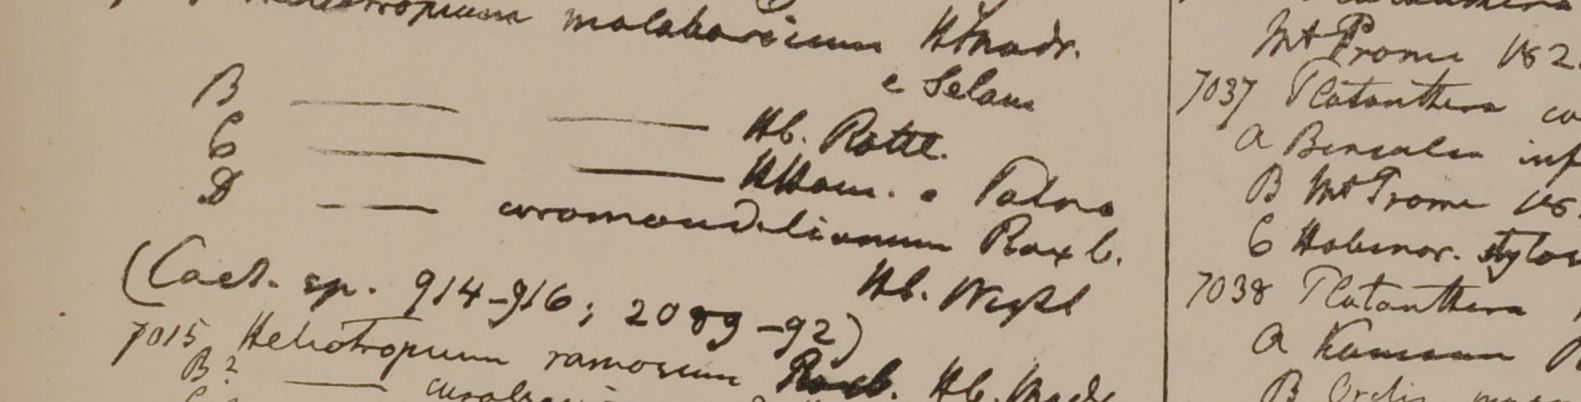 Heliotropium malabaricum HMadr.
e Selam
B — — Hb. Rottl.
C — — HHam. e Patna
D — coromandelianum Roxb.
Hb. Wight
(Cael. sp. 914-916; 2089-92)
7015 Heliotropium ramosum Roxb. Hb. Madr
B? —
Mt Prome 182
7037 Platanthera
A
B Mt Prome
C Habenar.
7038 Platanthera
A
B Orchis